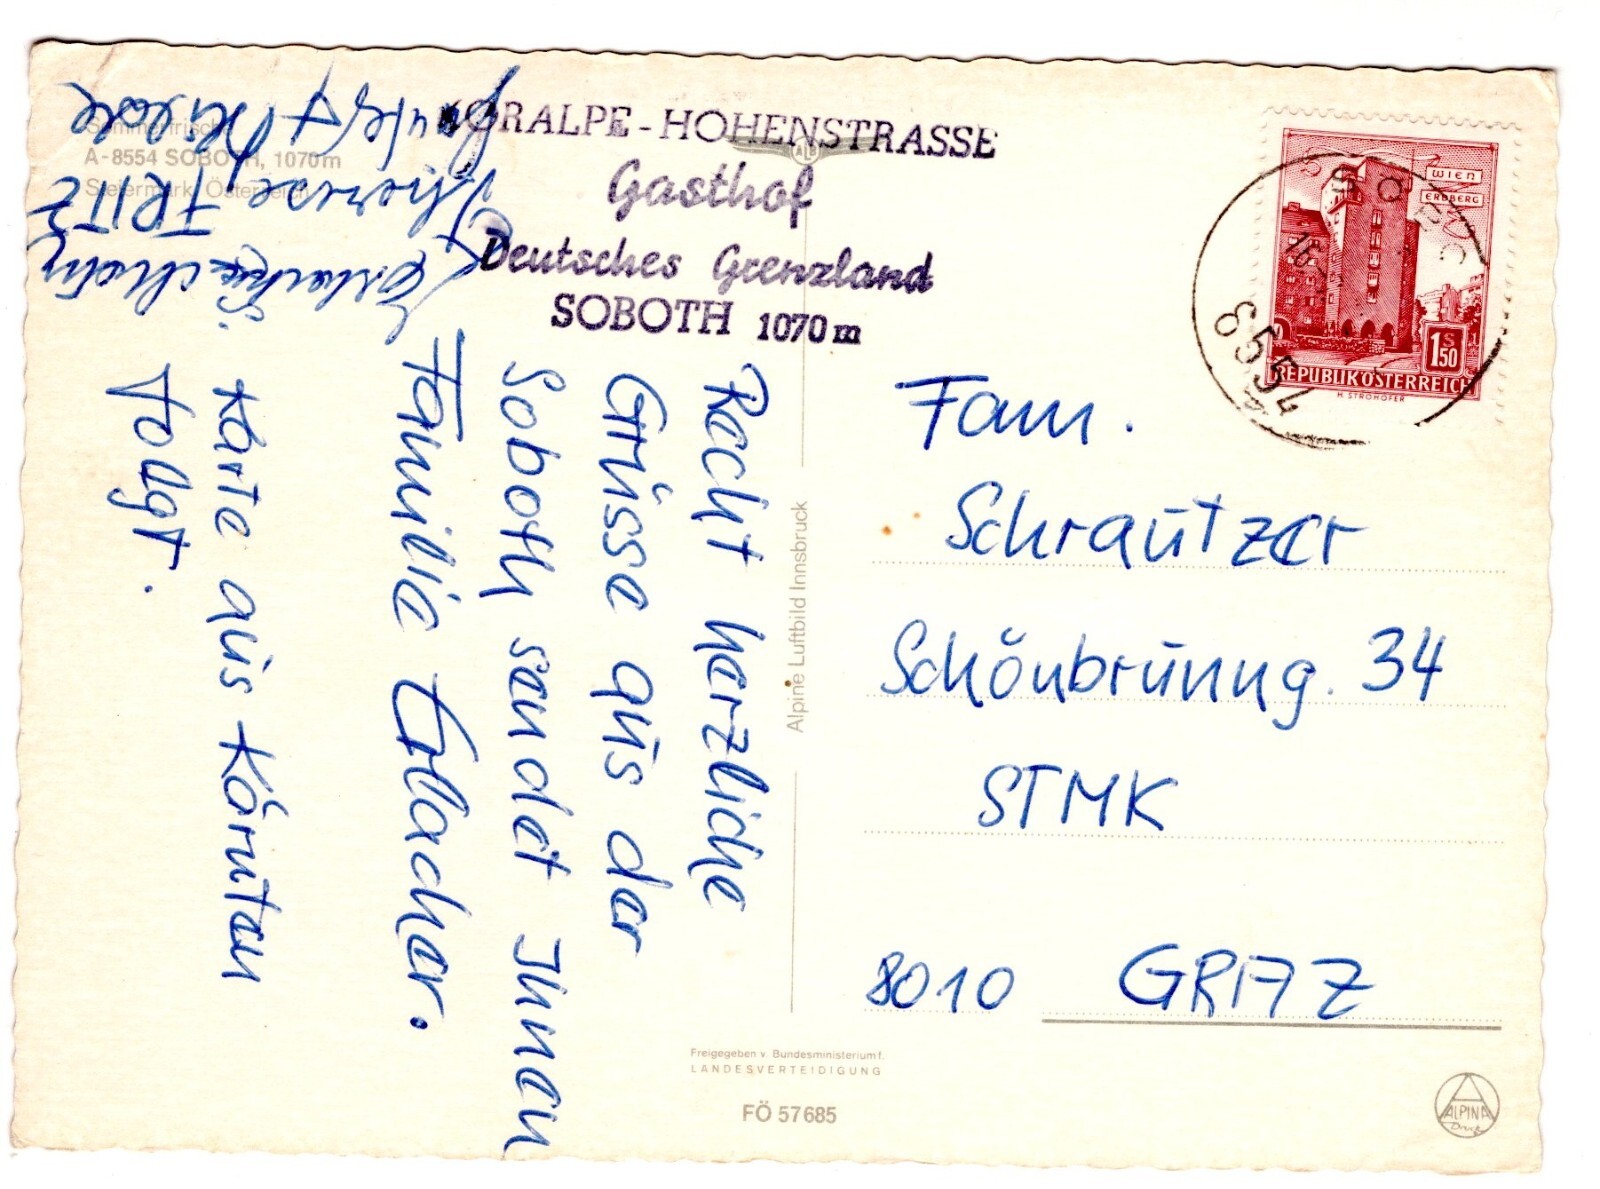 Sommerfrische
A-8554 SOBOTH, 1070m
Steiermark, Österreich
KORALPE-HOHENSTRASSE
Gasthof
Deutsches Grenzland
SOBOTH 1070m
ALB
Recht herzliche
Grüsse aus der
Soboth sendet Ihnen
Familie Erlacher.
S. Karte aus Kärnten
folgt.
Therese FRITZ
WIEN
ERDBERG
1 S 50
REPUBLIK ÖSTERREICH
H. STROHOFER
16.
8554
Fam.
Schrautzer
Schönbrunng. 34
STMK
8010 GRAZ
Alpine Luftbild Innsbruck
Freigegeben v. Bundesministerium f.
LANDESVERTEIDIGUNG
FÖ 57685
ALPINA
Druck